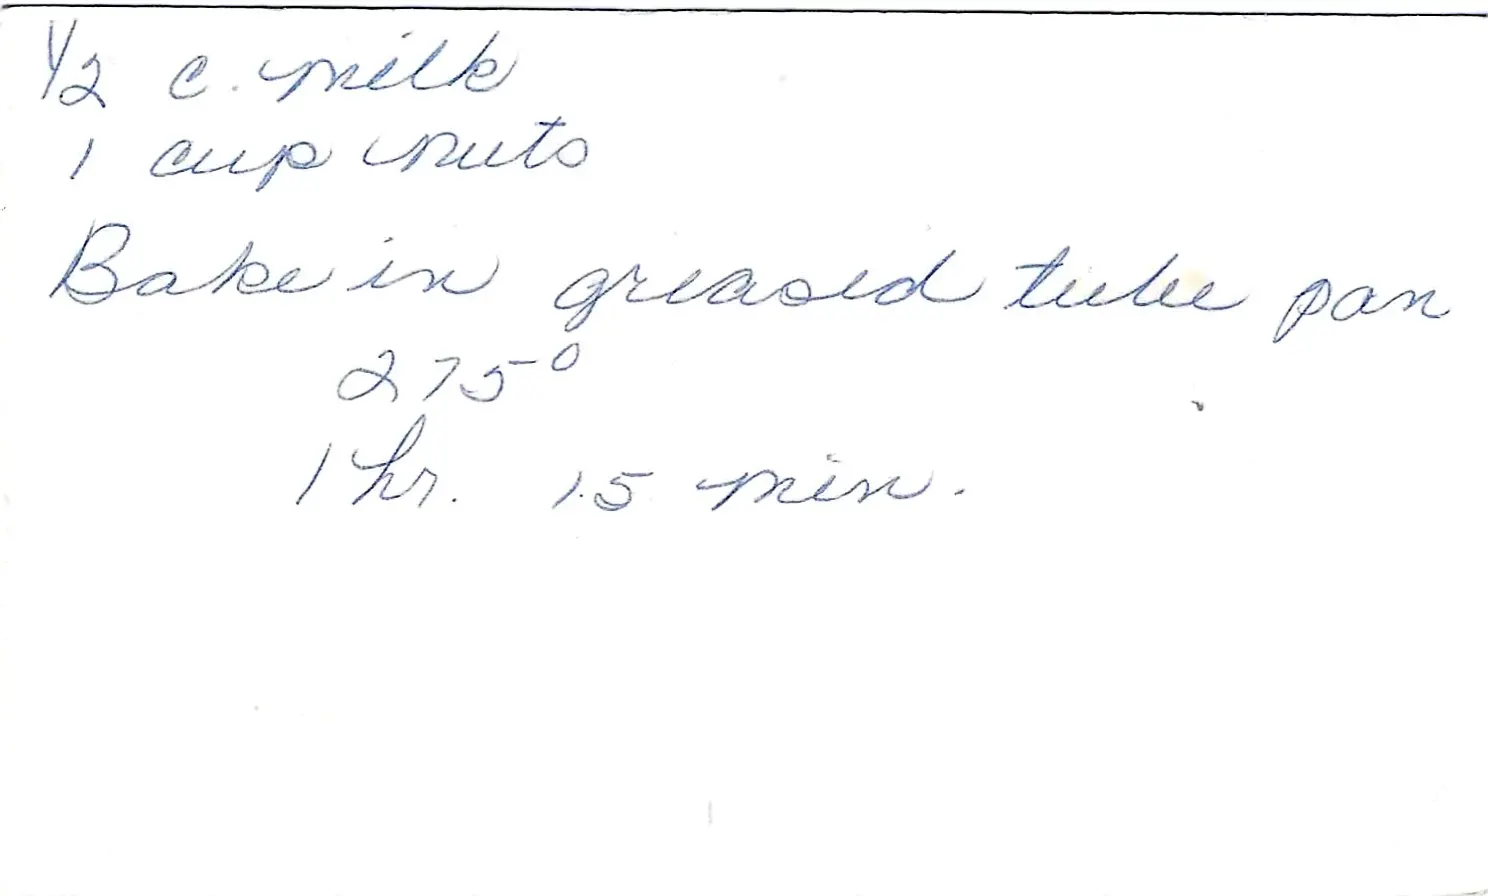 1/2 c. milk
1 cup nuts
Bake in greased tube pan
275°
1 hr. 15 min.